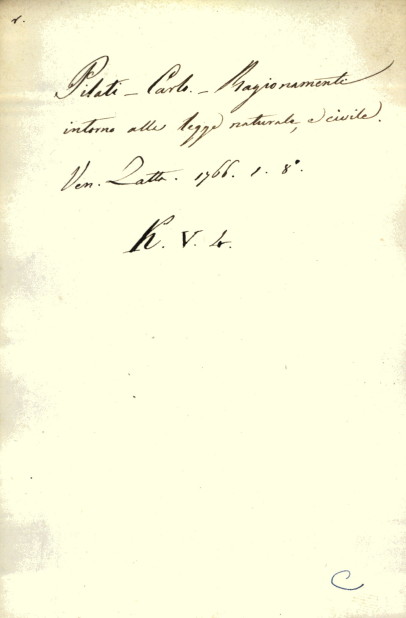 Pilati – Carlo. – Ragionamenti
intorno alla legge naturale, e civile.
Ven. Zatta. 1766. 1. 8°.
K. V. 4.
C